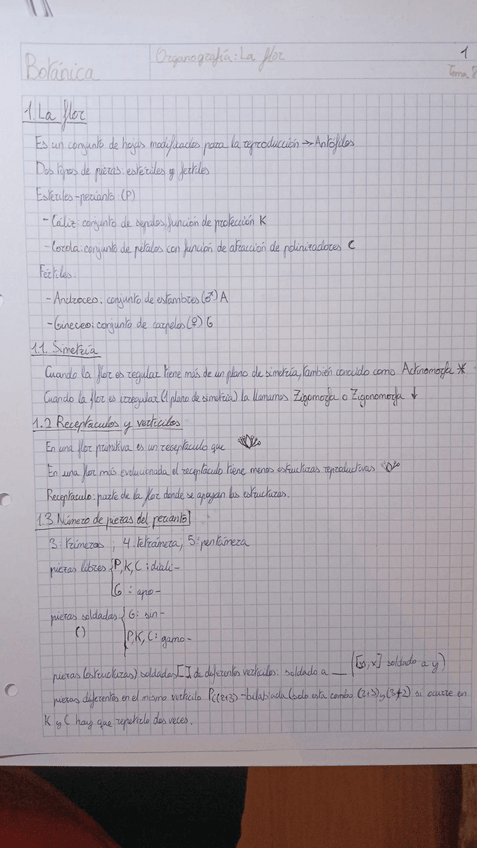 Botánica
Organografía: La flor
1
Tema
1. La flor
Es un conjunto de hojas modificadas para la reproducción → Antófilos
Dos tipos de piezas: estériles y fértiles
Estériles-periantio (P)
- Cáliz: conjunto de sépalos, función de protección K
- Corola: conjunto de pétalos con función de atracción de polinizadores C
Fértiles:
- Androceo: conjunto de estambres (♂) A
- Gineceo: conjunto de carpelos (♀) G
1.1. Simetría
Cuando la flor es regular tiene más de un plano de simetría, también conocido como Actinomorfa *
Cuando la flor es irregular (1 plano de simetría) la llamamos Zigomorfa o Zigonomorfa ↓
1.2 Receptáculos y verticilos
En una flor primitiva es un receptáculo que
En una flor más evolucionada el receptáculo tiene menos estructuras reproductivas
Receptáculo: parte de la flor donde se apoyan las estructuras.
1.3. Número de piezas del periantio
3: trímeras, 4: tetrámera, 5: pentámera
piezas libres { P, K, C: diali-
G: apo-
piezas soldadas { G: sin-
()
P, K, C: gamo-
piezas (estructuras) soldadas [ ] de diferentes verticilos: soldado a __ ([y, x] soldado a y)
piezas diferentes en el mismo verticilo P(2+3)-bilabiada (solo esta combo (2+3) y (3+2) si ocurre en
K y C hay que repetirlo dos veces.